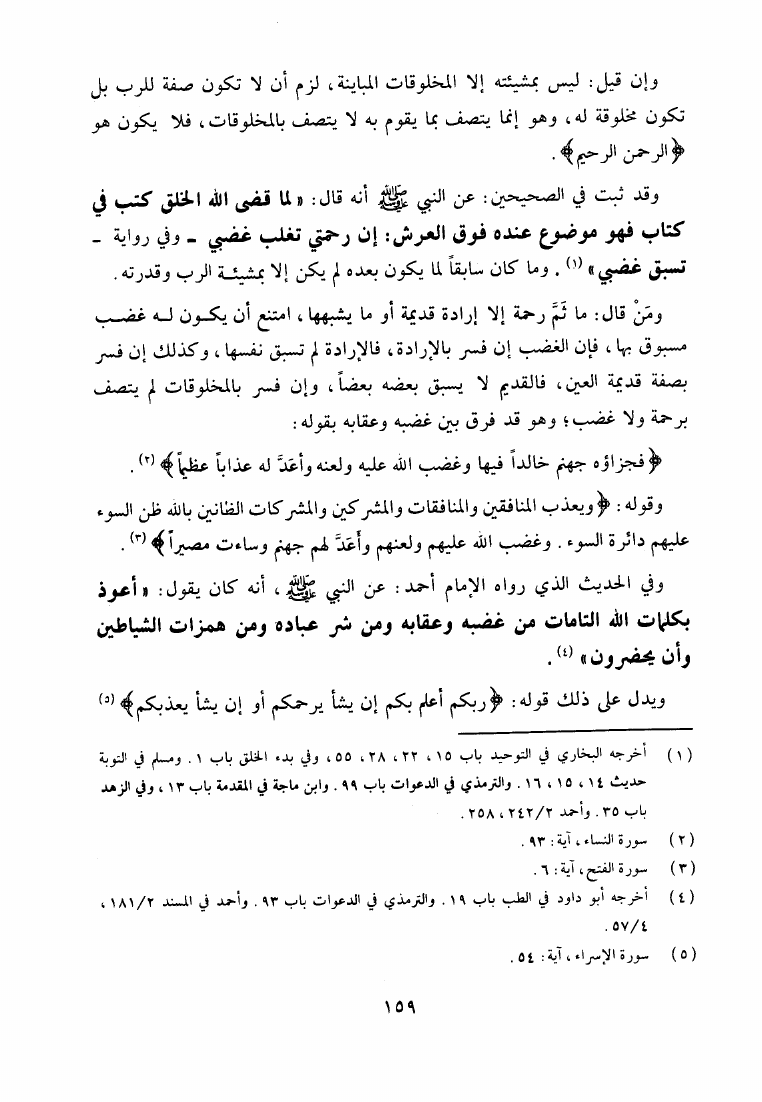 وإن قيل: ليس بمشيئته إلا المخلوقات المباينة، لزم أن لا تكون صفة للرب بل
تكون مخلوقة له، وهو إنما يتصف بما يقوم به لا يتصف بالمخلوقات، فلا يكون هو
﴿الرحمن الرحيم﴾.
وقد ثبت في الصحيحين: عن النبي ﷺ أنه قال: «لما قضى الله الخلق كتب في
كتاب فهو موضوع عنده فوق العرش: إن رحمتي تغلب غضبي - وفي رواية -
تسبق غضبي» (١). وما كان سابقاً لما يكون بعده لم يكن إلا بمشيئة الرب وقدرته.
ومَنْ قال: ما ثَمَّ رحمة إلا إرادة قديمة أو ما يشبهها، امتنع أن يكون له غضب
مسبوق بها، فإن الغضب إن فسر بالإرادة، فالإرادة لم تسبق نفسها، وكذلك إن فسر
بصفة قديمة العين، فالقديم لا يسبق بعضه بعضاً، وإن فسر بالمخلوقات لم يتصف
برحمة ولا غضب؛ وهو قد فرق بين غضبه وعقابه بقوله:
﴿فجزاؤه جهنم خالداً فيها وغضب الله عليه ولعنه وأعَدَّ له عذاباً عظيماً﴾ (٢).
وقوله: ﴿ويعذب المنافقين والمنافقات والمشركين والمشركات الظانين بالله ظن السوء
عليهم دائرة السوء. وغضب الله عليهم ولعنهم وأَعَدَّ لهم جهنم وساءت مصيراً﴾ (٣).
وفي الحديث الذي رواه الإمام أحمد: عن النبي ﷺ، أنه كان يقول: «أعوذ
بكلمات الله التامات من غضبه وعقابه ومن شر عباده ومن همزات الشياطين
وأن يحضرون» (٤).
ويدل على ذلك قوله: ﴿ربكم أعلم بكم إن يشأ يرحمكم أو إن يشأ يعذبكم﴾ (٥)
(١) أخرجه البخاري في التوحيد باب ١٥، ٢٢، ٢٨، ٥٥، وفي بدء الخلق باب ١. ومسلم في التوبة
حديث ١٤، ١٥، ١٦. والترمذي في الدعوات باب ٩٩. وابن ماجة في المقدمة باب ١٣، وفي الزهد
باب ٣٥. وأحمد ٢/٢٤٢، ٢٥٨.
(٢) سورة النساء، آية: ٩٣.
(٣) سورة الفتح، آية: ٦.
(٤) أخرجه أبو داود في الطب باب ١٩. والترمذي في الدعوات باب ٩٣. وأحمد في المسند ٢/١٨١،
٤/٥٧.
(٥) سورة الإسراء، آية: ٥٤.
١٥٩